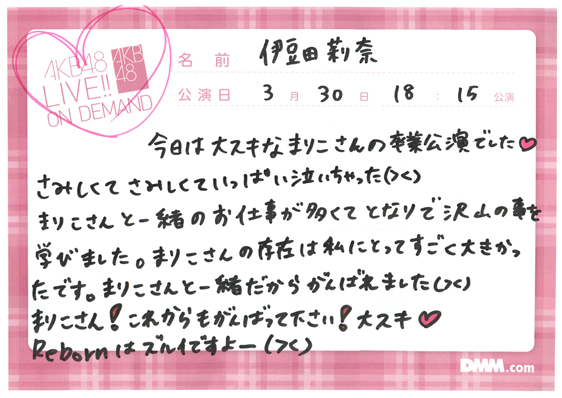 AKB48
LIVE!!
ON DEMAND
AKB
48
名前 伊豆田莉奈
公演日 3月30日 18:15公演
今日は大スキなまりこさんの卒業公演でした♥
さみしくてさみしくていっぱい泣いちゃった(>く)
まりこさんと一緒のお仕事が多くてとなりで沢山の事を
学びました。まりこさんの存在は私にとってすごく大きかっ
たです。まりこさんと一緒だからがんばれました(>く)
まりこさん!これからもがんばって下さい!大スキ♥
Rebornはズルイですよー(>く)
DMM.com